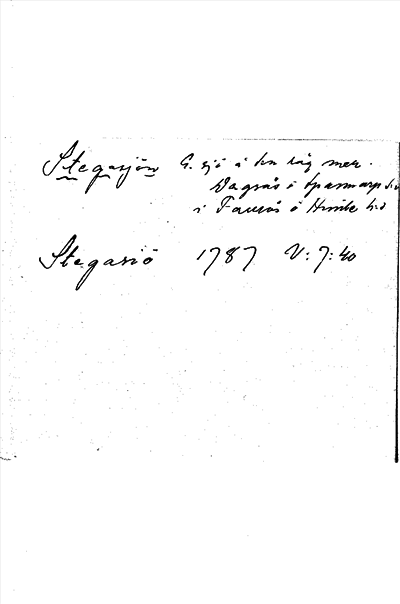 Stegasjön G. sjö å en råg mer.
Vagsås i Spannarp s:n
i Faurås o Himle h:d
Stegasiö 1787 V:7:40